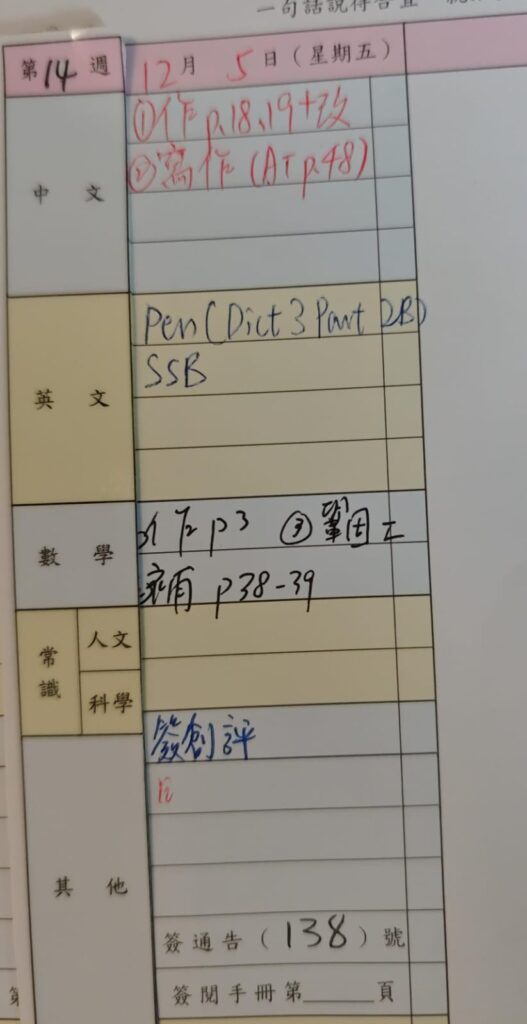 一句話說得合宜
第14週 12月5日(星期五)
中文
①作p.18、19+改
②寫作(AT p.48)
英文
Pen(Dict 3 Part 2B)
SSB
數學
作p3 ③鞏固
p38-39
常識
人文
科學
其他
簽創評
簽通告(138)號
簽閱手冊第______頁